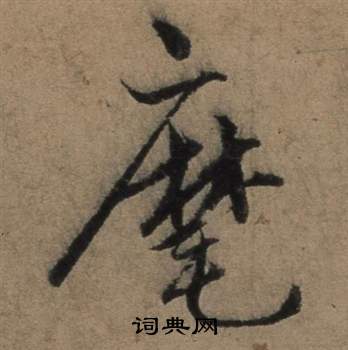 麾
词典网